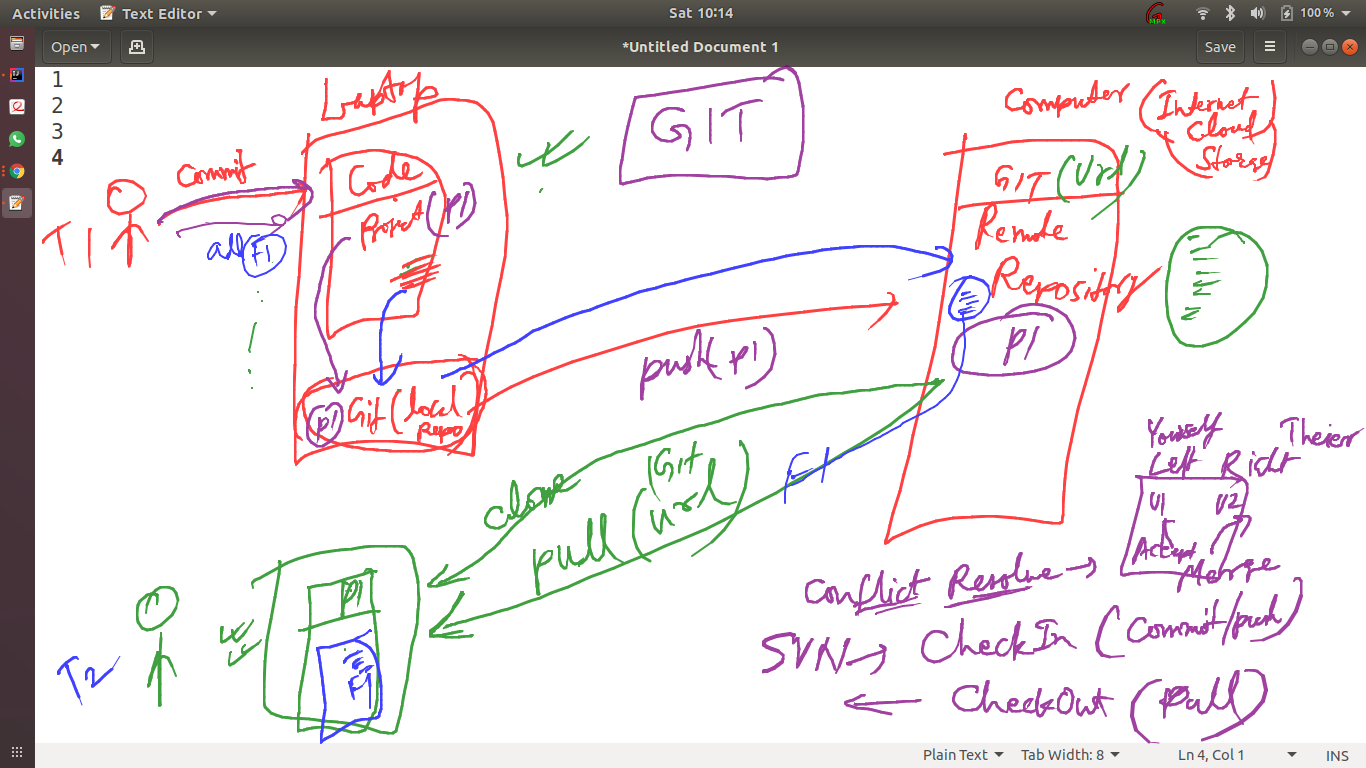 Activities
Text Editor
Sat 10:14
MPX
100 %
Open
*Untitled Document 1
Save
1
2
3
4
Laptop
GIT
Computer (Internet
Cloud
Storage)
Commit
Code
Project (P1)
GIT (Url)
Remote
Repository
T1
add F1
P1
push(p1)
p1 Git (local
repo
clone
pull (Git
Url)
F1
Yourself
Left
Theier
Right
V1 V2
Accept
Merge
Conflict Resolve →
SVN → CheckIn (Commit/push)
← CheckOut (Pull)
P1
F1
T2
Plain Text
Tab Width: 8
Ln 4, Col 1
INS